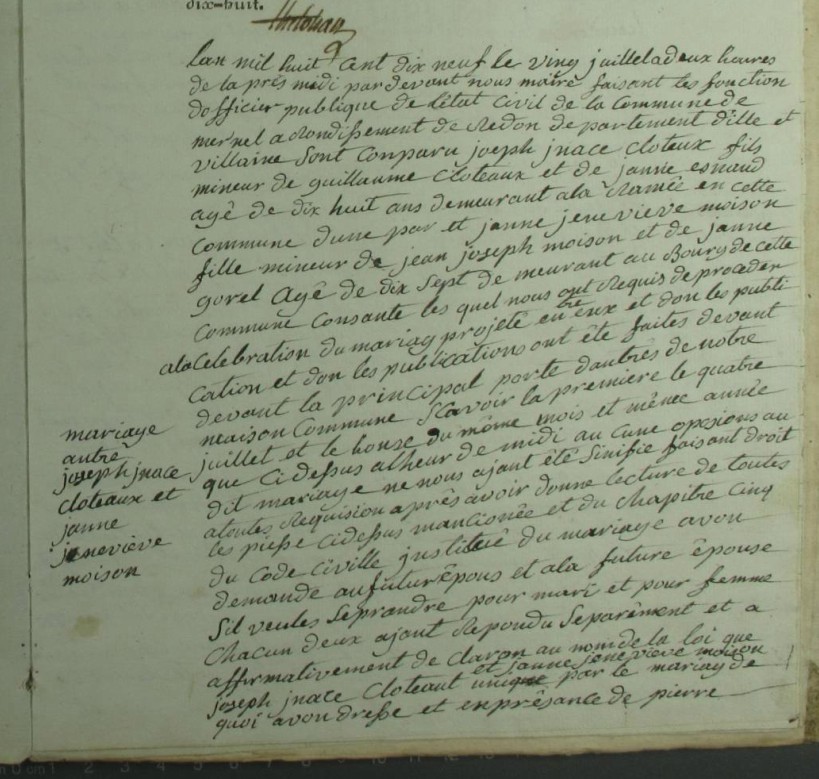 dix-huit.
lan mil huit Cent dix neuf le ving juillet a deux heures
de la prés midi par devant nous maire faisant les fonction
dofficier publique de létat Civil de la Commune de
mernel arondissement de Redon departement dille et
villaine Sont Conparu joseph jnace cloteux fils
mineur de guillaume Cloteaux et de janne esnaud
agé de dix huit ans demeurant ala Ramée en cette
Commune dune par et janne jenevieve moison
fille mineur de jean joseph moison et de janne
gorel Agé de dix Sept de meurant au Bourg de cette
Commune Consante les quel nous ont Requis de proceder
ala Celebration du mariag projeté entre eux et don les publi-
cation et don les publications ont été faites devant
devant la principal porte dautrés de notre
maison Commune Scavoir la premiere le quatre
juillet et le honse du même mois et ménce année
que Ci dessus alheur de midi au cune opesions au
dit mariage ne nous ajant été Sinifie faisant droit
atoutes Requision aprés avoir donne lecture de toutes
les piesse Cidesus mancionée et du Chapitre Cinq
du Code Civille justitué du mariage avon
demande aufutur épous et ala future épouse
Sil veules Seprandre pour mari et pour femme
Chacun deux ajant Repondu Separément et a
affirmativement de claron au nom de la loi que
joseph jnace Cloteaut et janne jenevieve moison unique par le mariag de
quoi avon dresse et en présance de pierre
mariage
autre
joseph jnace
cloteaux et
janne
jeneviève
moison